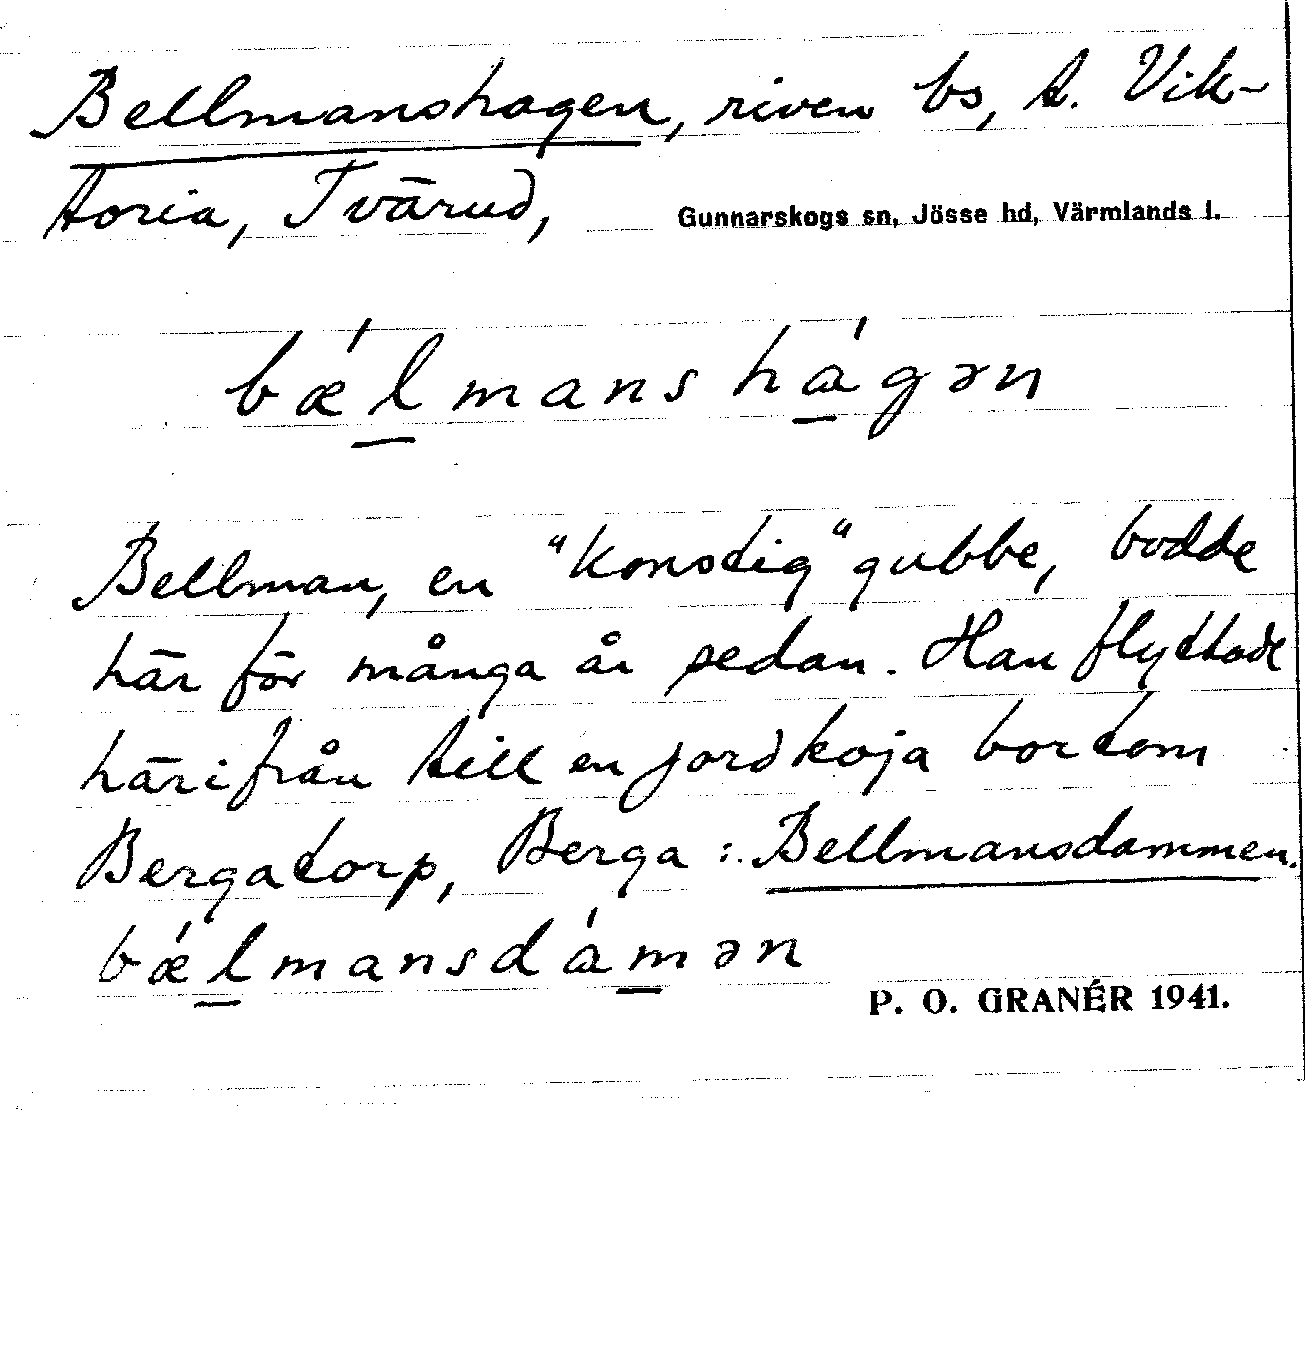 Bellmanshagen, riven bs, t. Vik-
toria, Tvärud, Gunnarskogs sn, Jösse hd, Värmlands l.
bǽl̲manshá̲gən
Bellman, en "konstig" gubbe, bodde
här för många år sedan. Han flyttade
härifrån till en jordkoja bortom
Bergatorp, Berga: Bellmansdammen.
bǽl̲mansdám̲ən
P. O. GRANÉR 1941.